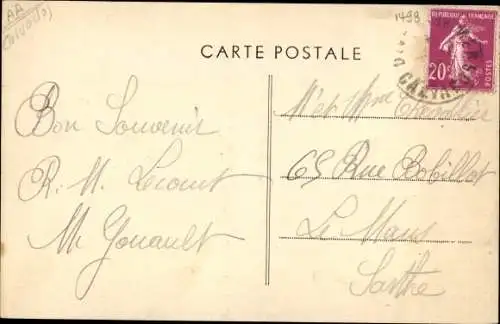 AA
Calvados
1498
RÉPUBLIQUE FRANÇAISE
20c
POSTES
CALVADOS
CARTE POSTALE
Bon Souvenir
R. M. Lecourt
M. Gouault
Mr et Mme Chevallier
65 Rue Bobillot
Le Mans
Sarthe